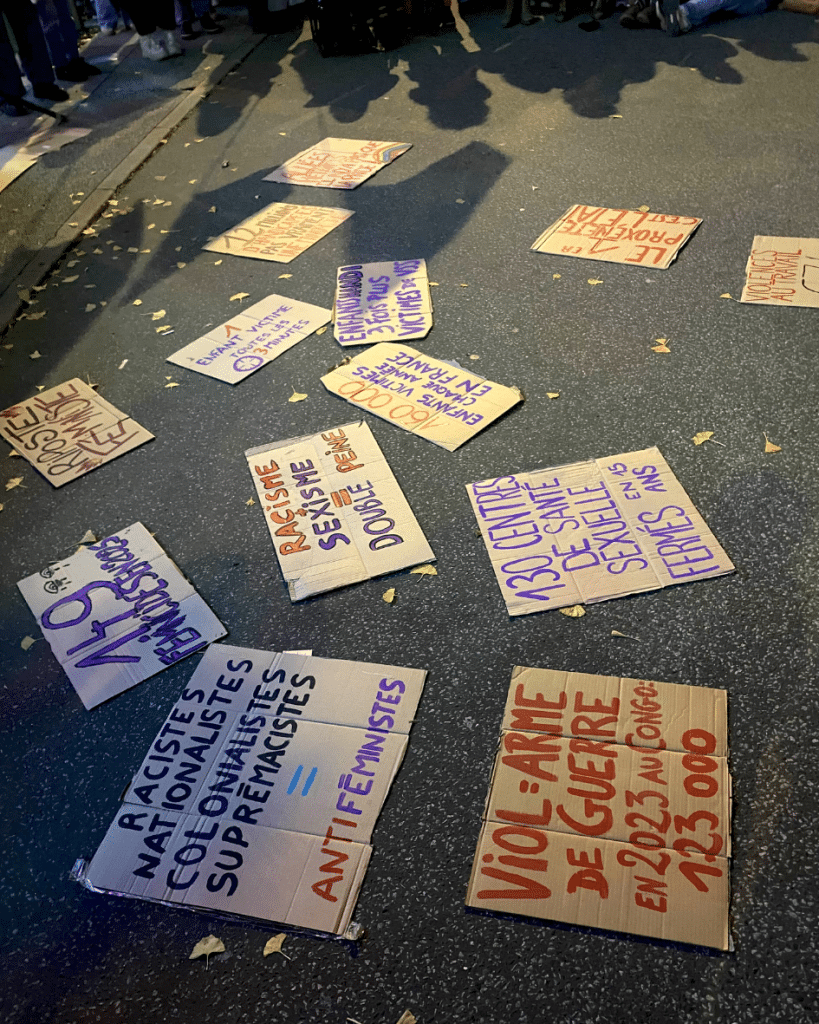 12
PAS
LE 1ER
PROXÉNÈTE
C'EST L'ETAT
VIOLENCES
AU TRAVAIL
3 FOIS PLUS
VICTIMES DE VIS
1
ENFANT VICTIME
TOUTES LES
3 MINUTES
160 000
ENFANTS VICTIMES
CHAQUE ANNÉE
EN FRANCE
RIPOSTE
FÉMINISTE
RACISME
+
SEXISME
=
DOUBLE PEINE
130 CENTRES
DE SANTÉ
SEXUELLE
FERMÉS EN 15
ANS
149
FÉMINICIDES EN 2025
RACISTES
NATIONALISTES
COLONIALISTES
SUPRÉMACISTES
=
ANTIFÉMINISTES
VIOL = ARME
DE GUERRE
EN 2023 AU CONGO:
123 000